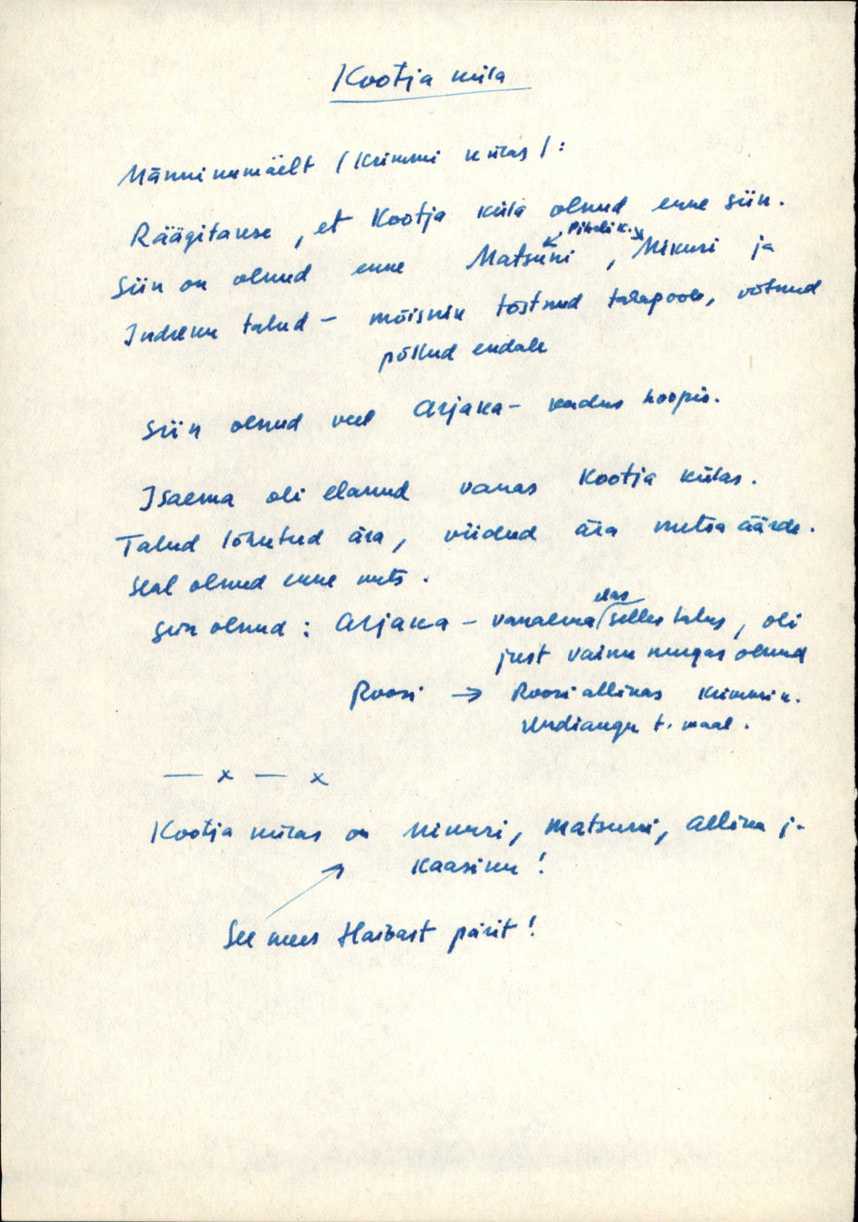 Kootja küla
Männinumäelt / Krimmi külas /:
Räägitakse, et Kootja küla olnud enne siin.
Siin on olnud enne Matsuni, Nikuri ja
Indreku talud – mõisnik tõstnud tahapoole, võtnud
põllud endale
Siin olnud veel Arjaka – kadus hoopis.
Isaema oli elanud vanas Kootja külas.
Talud lõhutud ära, viidud ära metsa äärde.
Seal olnud enne mets.
Siin olnud: Arjaka – vanaema elas selles talus, oli
just vainu nurgas olnud
Roosi → Roosiallikas Krimmi k.
t. maal.
— x — x
Kootja külas on Nikuri, Matsuni, Allika j-
Kaasiku!
See mees Haibast pärit!